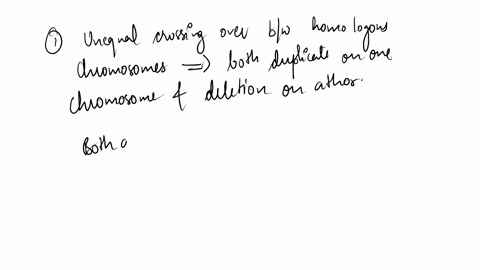 ① Unequal crossing over b/w homologous
chromosomes => both duplicate on one
chromosome & deletion on athor.
Both a